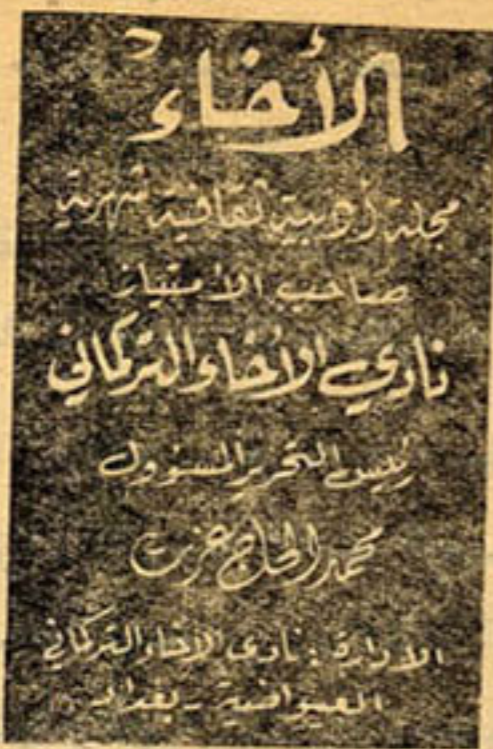 الأخاء
مجلة أدبية ثقافية شهرية
صاحب الامتياز
نادي الأخاء التركماني
رئيس التحرير المسؤول
محمد الحاج عزت
الادارة : نادي الاخاء التركماني
العيواضية - بغداد